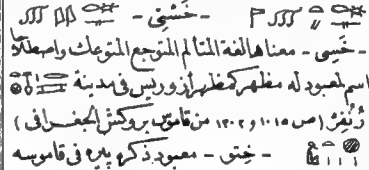 - خَسْتِى -
- خَسِى - معناها لغة المتألم المتوجع المتوعك واصطلاحًا
اسم لمعبود له مظهر كمظهر أزوريس فى مدينة
زُنْفِرْ ( ص ١٠١٥ و ١٢٠٢ من قاموس بروكش الجغرافى )
- خِتو - معبود ذكره بيره فى قاموسه